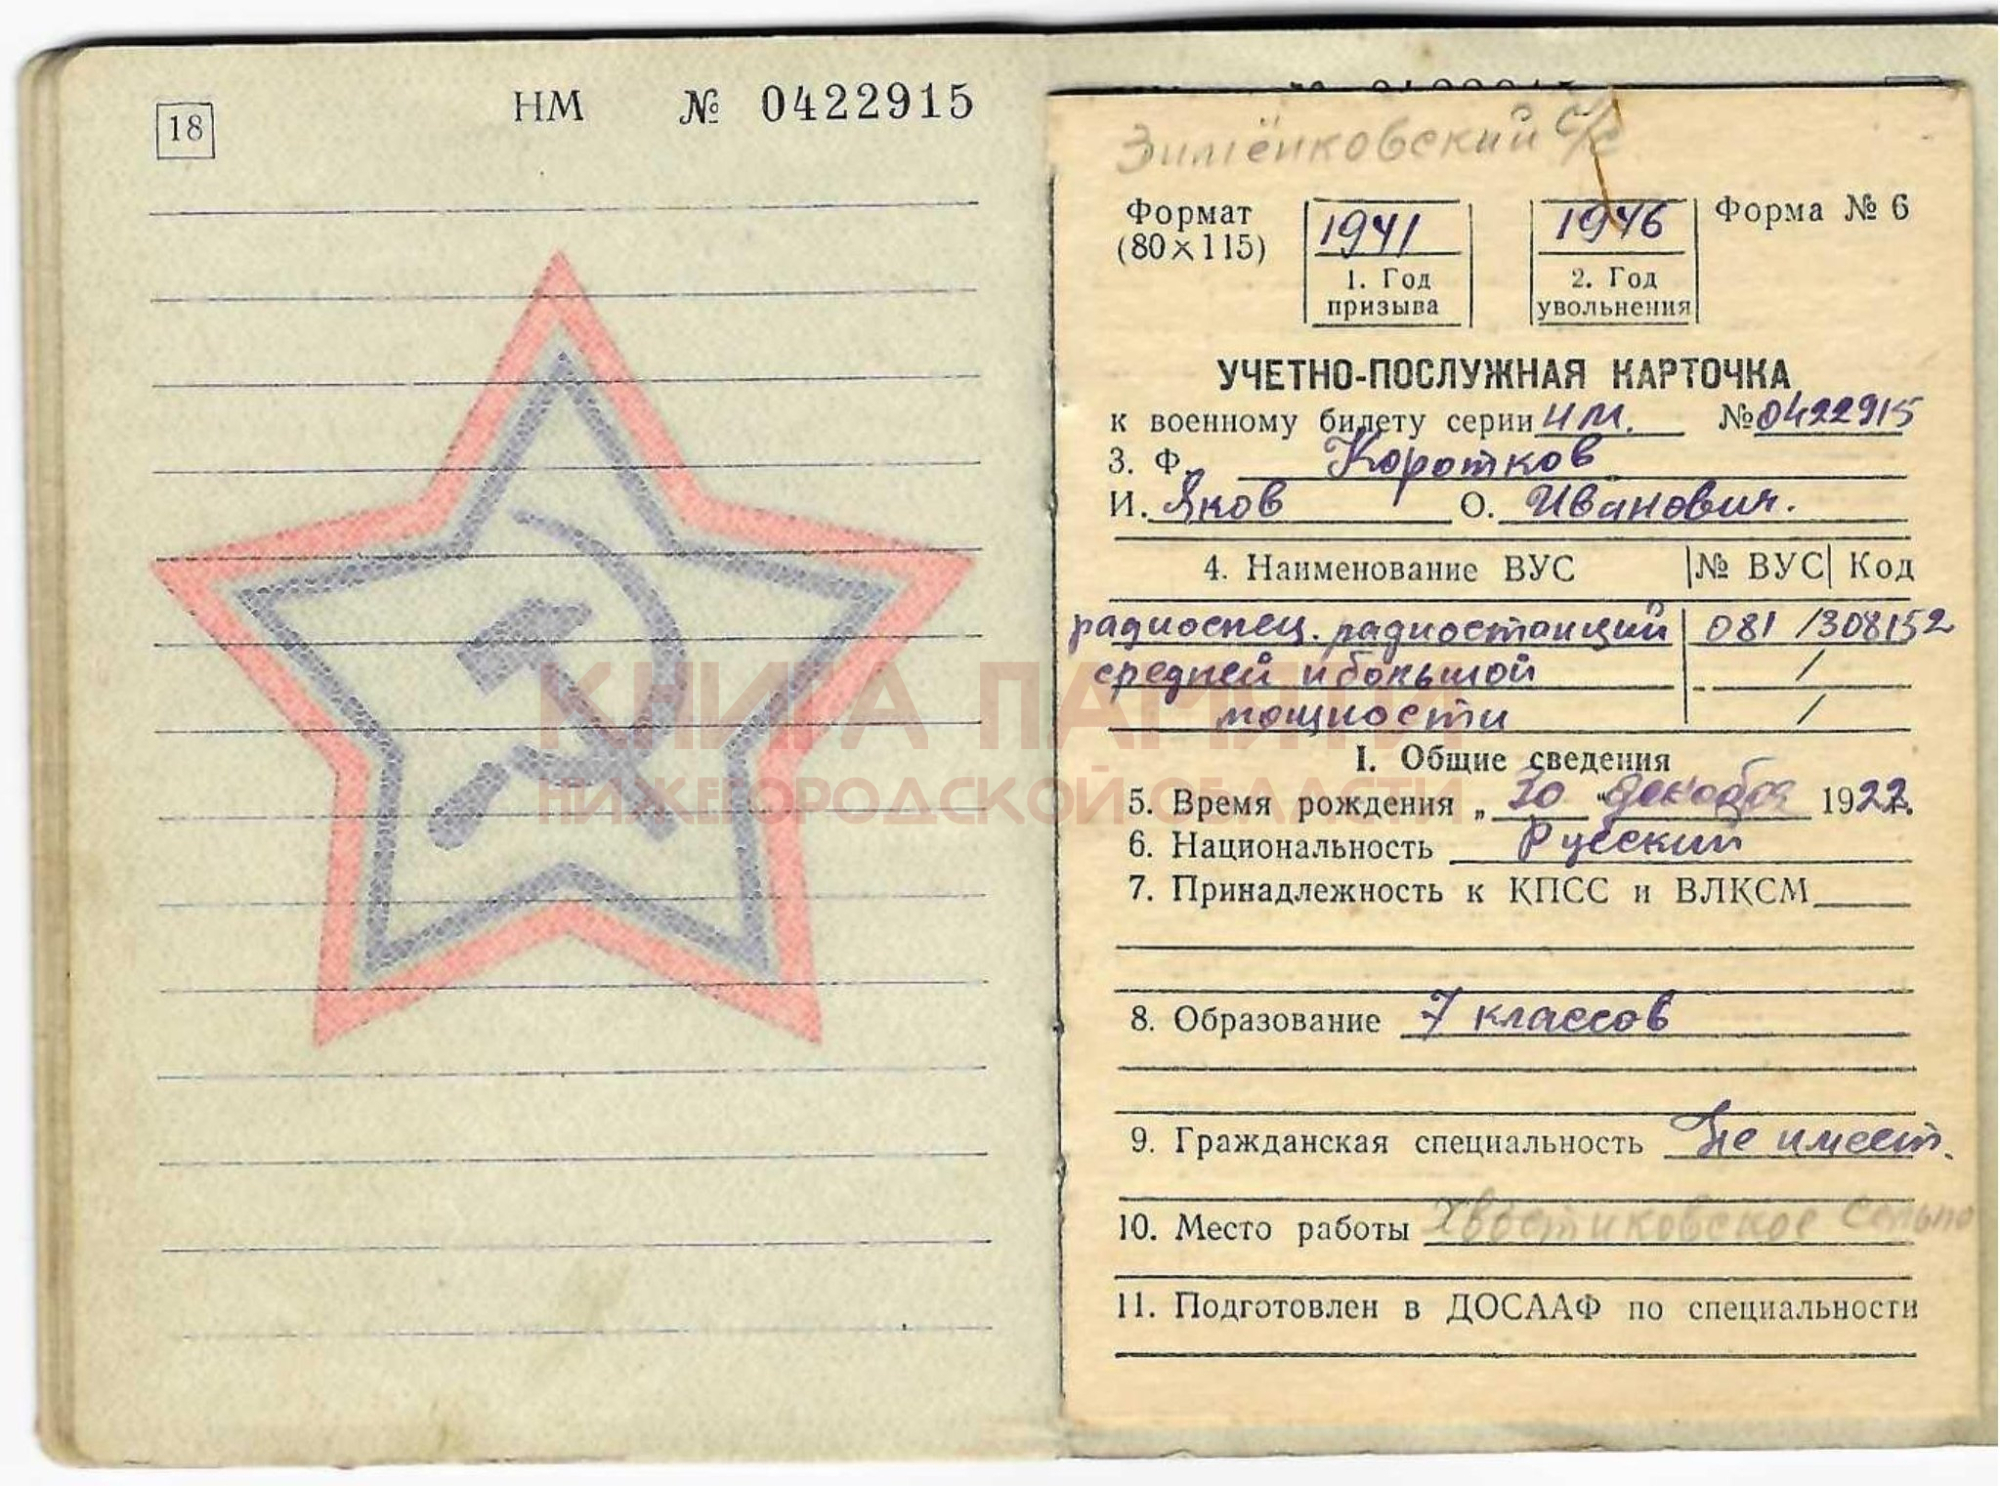 18
НМ № 0422915
Зименковский с/с
Формат
(80×115)
1941
1. Год
призыва
1946
2. Год
увольнения
Форма № 6
УЧЕТНО-ПОСЛУЖНАЯ КАРТОЧКА
к военному билету серии НМ. № 0422915
3. Ф. Коротков
И. Яков О. Иванович.
4. Наименование ВУС № ВУС Код
радиоспец. радиостанций 081 /308152
средней и большой /
мощности /
КНИГА ПАМЯТИ
НИЖЕГОРОДСКОЙ ОБЛАСТИ
I. Общие сведения
5. Время рождения „ 20 “ декабря 1922 г.
6. Национальность Русский
7. Принадлежность к КПСС и ВЛКСМ
8. Образование 7 классов
9. Гражданская специальность Не имеет.
10. Место работы Хвостиковское сельпо
11. Подготовлен в ДОСААФ по специальности